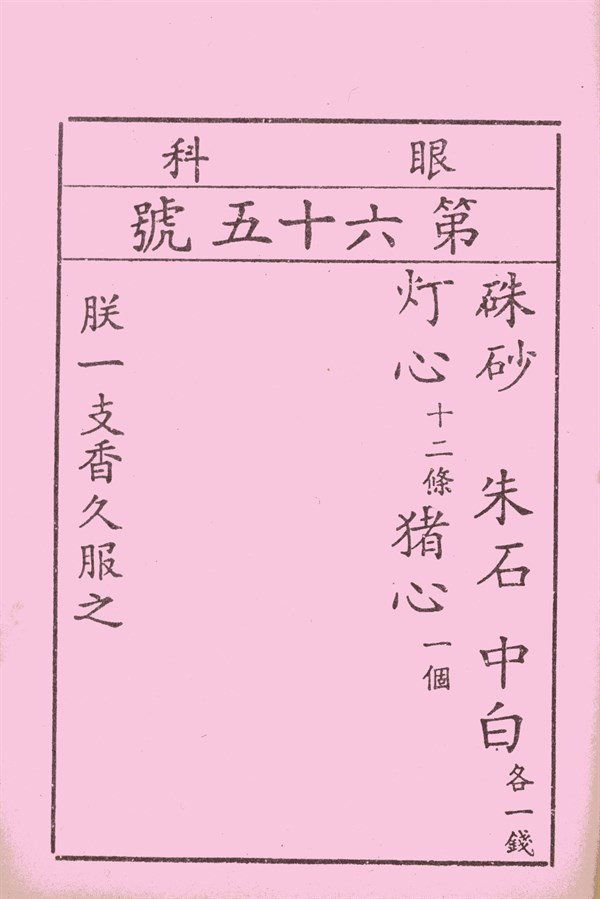 眼科
第六十五號
硃砂 朱石 中白各一錢
灯心十二條猪心一個
朕一支香久服之